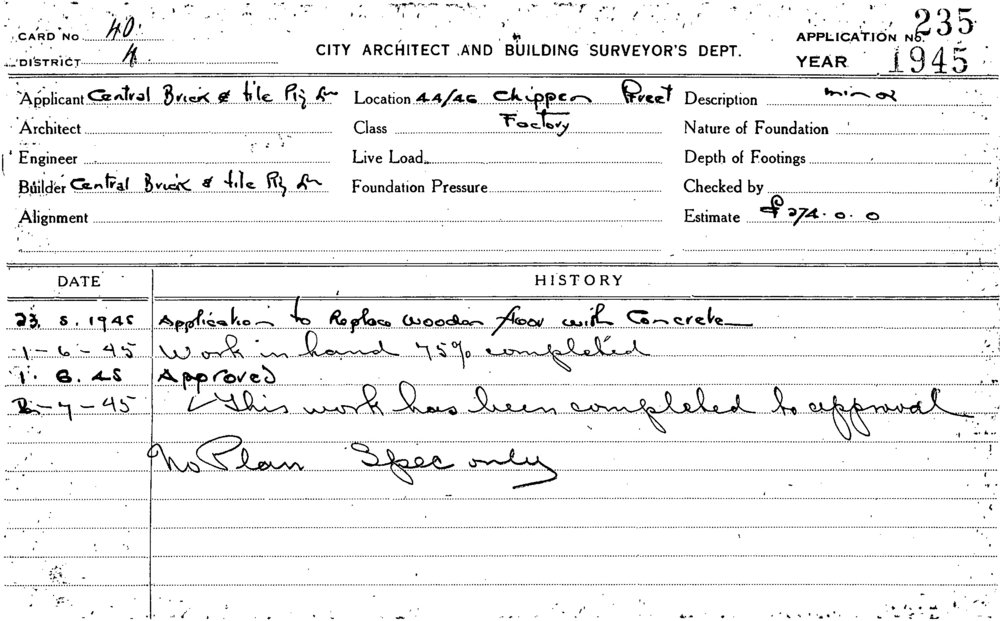 CARD No 40.
DISTRICT 4
CITY ARCHITECT AND BUILDING SURVEYOR'S DEPT.
APPLICATION No. 235
YEAR 1945
Applicant Central Brick & tile Pty Ln Location 44/46 Chippen Street Description minor
Architect Class Factory Nature of Foundation
Engineer Live Load Depth of Footings
Builder Central Brick & tile Pty Ln Foundation Pressure Checked by
Alignment Estimate £274.0.0
DATE HISTORY
23.5.1945 Application to Replace wooden floor with Concrete
1-6-45 Work in hand 75% completed
1.6.45 Approved
-7-45 This work has been completed to approval
No Plan Spec only